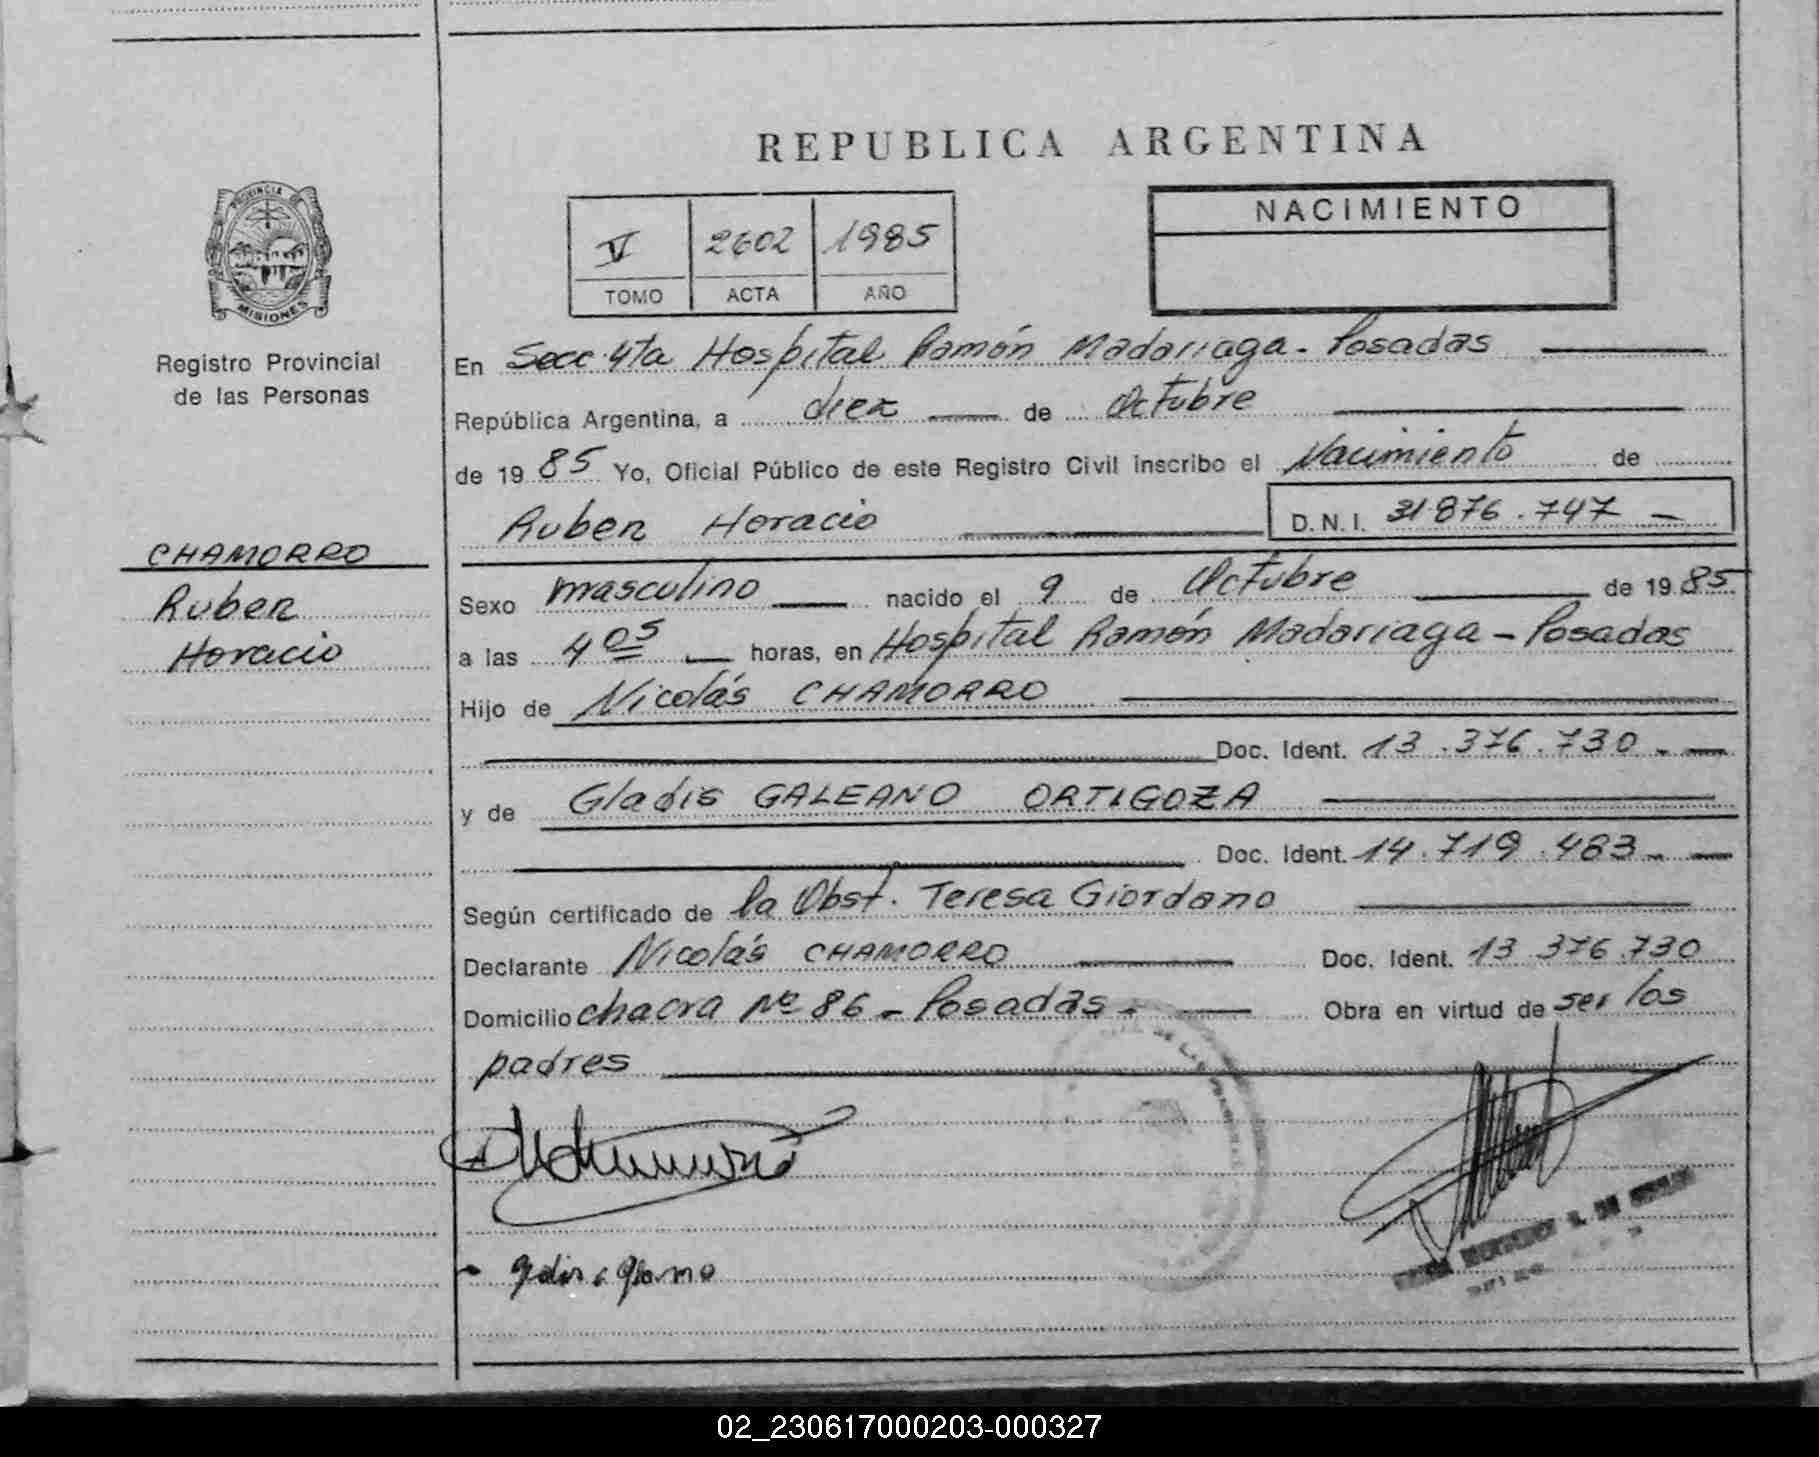 REPUBLICA ARGENTINA
PROVINCIA DE
MISIONES
Registro Provincial
de las Personas
V 2602 1985
TOMO ACTA AÑO
NACIMIENTO
En Secc. 4ta Hospital Ramón Madariaga - Posadas
República Argentina, a diez de Octubre
de 1985 Yo, Oficial Público de este Registro Civil inscribo el Nacimiento de
Ruben Horacio D.N.I. 31.876.747 -
CHAMORRO
Ruben
Horacio
Sexo masculino nacido el 9 de Octubre de 1985
a las 4 05 horas, en Hospital Ramón Madariaga - Posadas
Hijo de Nicolás CHAMORRO
Doc. Ident. 13.376.730.-
y de Gladis GALEANO ORTIGOZA
Doc. Ident. 14.719.483.-
Según certificado de la Obst. Teresa Giordano
Declarante Nicolás CHAMORRO Doc. Ident. 13.376.730
Domicilio chacra Nº 86 - Posadas - Obra en virtud de ser los
padres
02_230617000203-000327